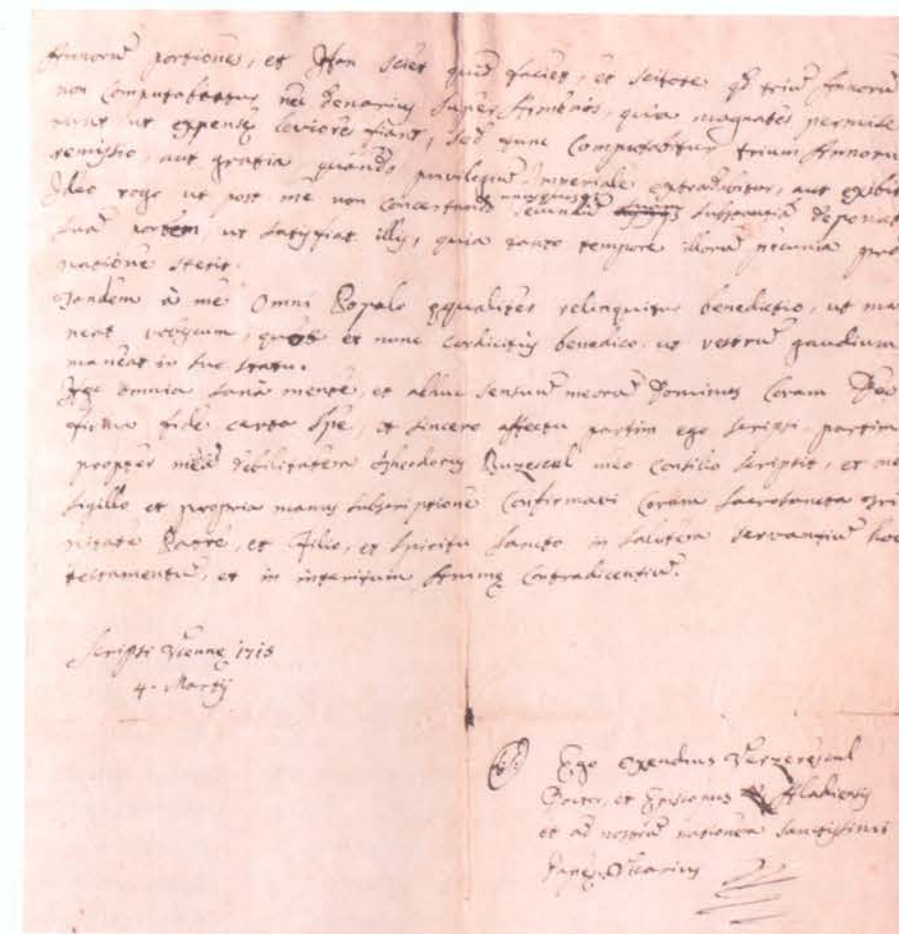 Annorũ portione, et Jfan sciet quid faciet, et scitote qd triũ Annorũ
non computabitur nec denarius super Armenos, quia magnates permise
runt ut expensę leviore fiant, sed tunc computabitur trium Annorũ
remissio, aut gratia, quando privilegiũ Imperiale extradabitur, aut exibit
Ideo rogo ut post me non concertando unusquisque secundũ substantiã deponat
suã portem, ut satisfiat illis, quia tanto tempore illorũ pecunia
natione stetit.
Tandem à me Omni Populo ęqualiter relinquitur benedictio, ut ma
neat vobiscum, quos et nunc cordicitus benedico, ut vestrũ gaudium
maneat in suo statu.
Hęc omnia sanâ mente, et adhuc sensuum meorũ Dominus Coram Deo
firma fide, certa spe, et sincero affectu partim ego scripsi, partim
propter meã debilitatem Theodorus meo consilio scripsit, et me
sigillo et propria manus subscriptione confirmavi Coram Sacrosancta Tri
nitate Patre, et Filio, et Spiritu Sancto in salutem servantiũ hoc
testamentũ, et in interitum Animę Contradicentiũ.
Scripsi Viennę 1715
4. Martij
Ego Oxendius Verzerescul
Doctor, et Episcopus Aladiensis
et ad nostrã nationem Sanctissimi
Papę Vicarius